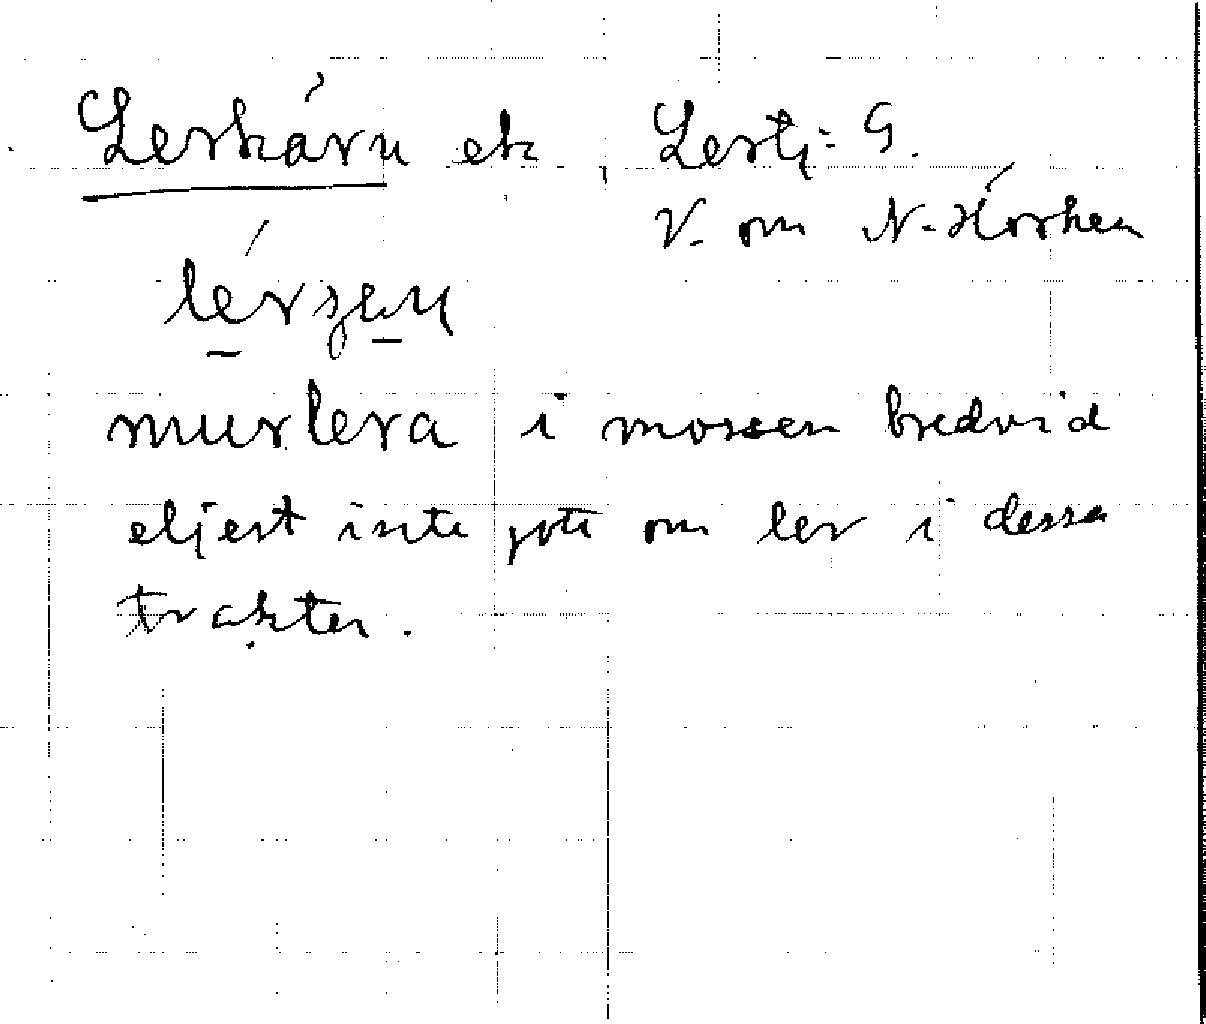 Lerkärn ek Lestj: G.
V. om N. Hörken
murlera i mossen bredvid
eljest inte gott om ler i dessa
trakter.